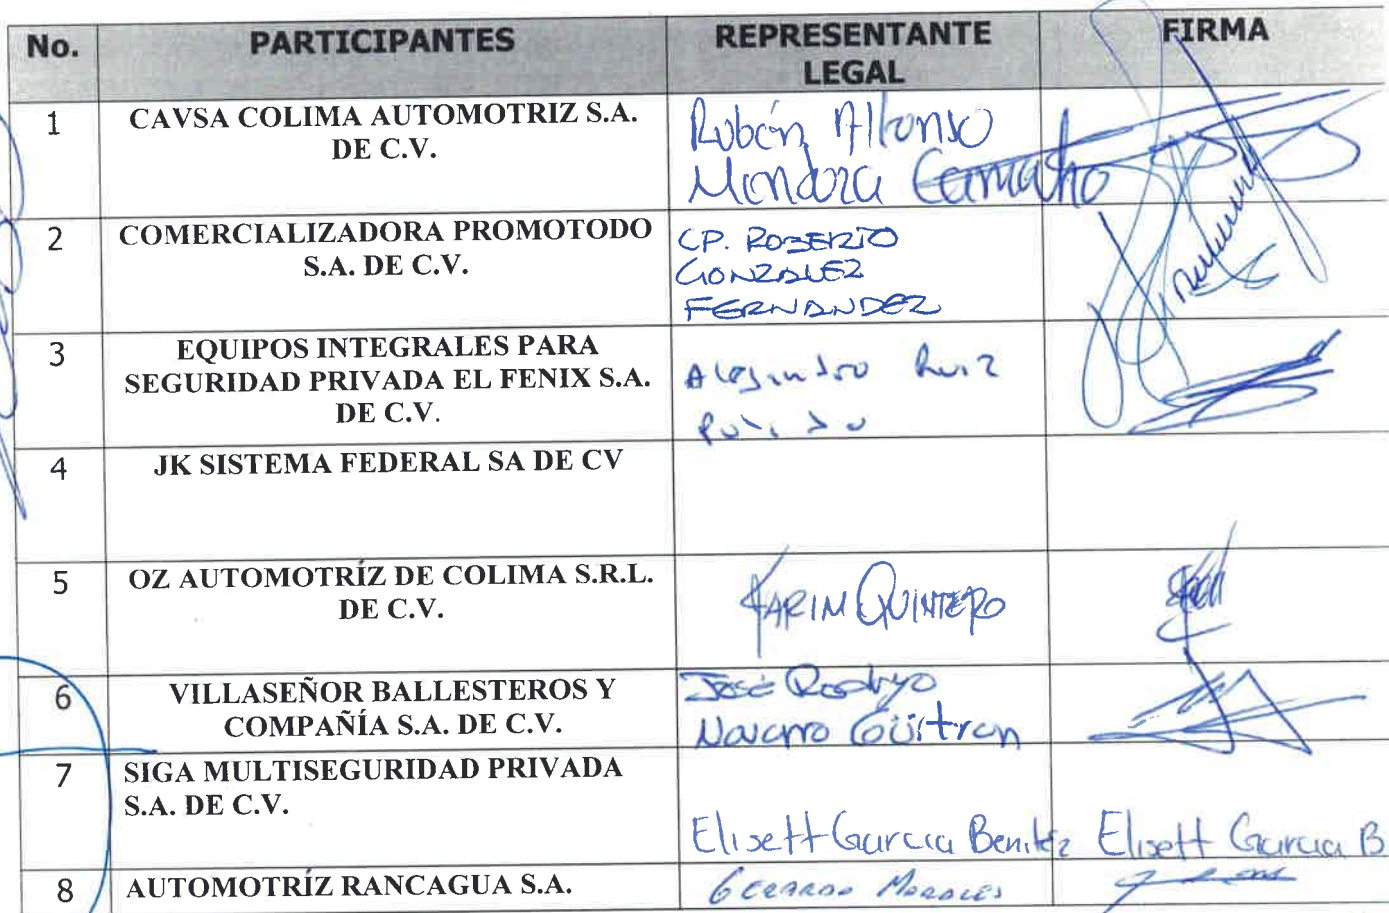 No. PARTICIPANTES REPRESENTANTE LEGAL FIRMA
1 CAVSA COLIMA AUTOMOTRIZ S.A. DE C.V.
Rubén Alfonso
Mendoza Camacho
2 COMERCIALIZADORA PROMOTODO S.A. DE C.V.
CP. ROBERTO
GONZALEZ
FERNANDEZ
3 EQUIPOS INTEGRALES PARA
SEGURIDAD PRIVADA EL FENIX S.A.
DE C.V.
Alejandro Ruiz
Pulido
4 JK SISTEMA FEDERAL SA DE CV
5 OZ AUTOMOTRÍZ DE COLIMA S.R.L.
DE C.V.
KARIM QUINTERO
6 VILLASEÑOR BALLESTEROS Y
COMPAÑÍA S.A. DE C.V.
José Rodrigo
Navarro Güitron
7 SIGA MULTISEGURIDAD PRIVADA
S.A. DE C.V.
Elisett Garcia Benitez Elisett Garcia B
8 AUTOMOTRÍZ RANCAGUA S.A.
GERARDO MORALES